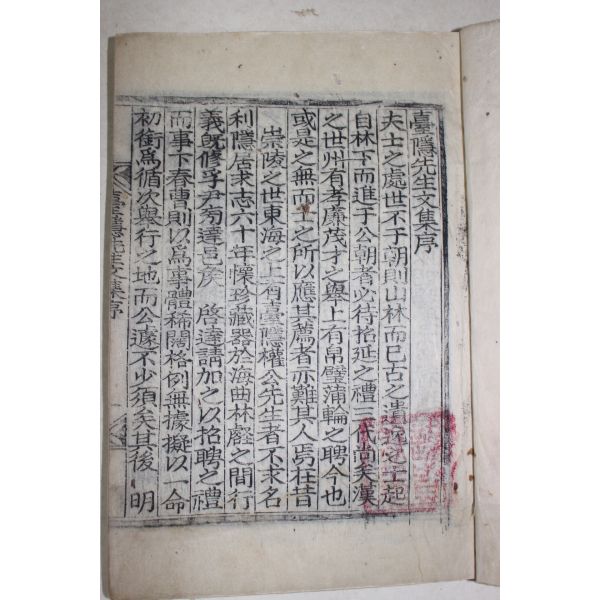 臺隱先生文集序
夫士之處世不于朝則山林而已古之遺逸之士起
自林下而進于公朝者必待招延之禮三代尚矣漢
之世州有孝廉茂才之舉上有帛璧蒲輪之聘今也
或是之無而士之所以應其薦者亦難其人焉在昔
崇陵之世東海之上有臺隱權公先生者不求名
利隱居求志六十年懷珍藏器於海曲林壑之間行
義旣修孚尹旁達邑侯 啓達請加之以招聘之禮
而事下春曹則以爲事體稀闊格例無據擬以一命
初銜爲循次舉行之地而公遽不少須矣其後 明
臺隱先生文集序